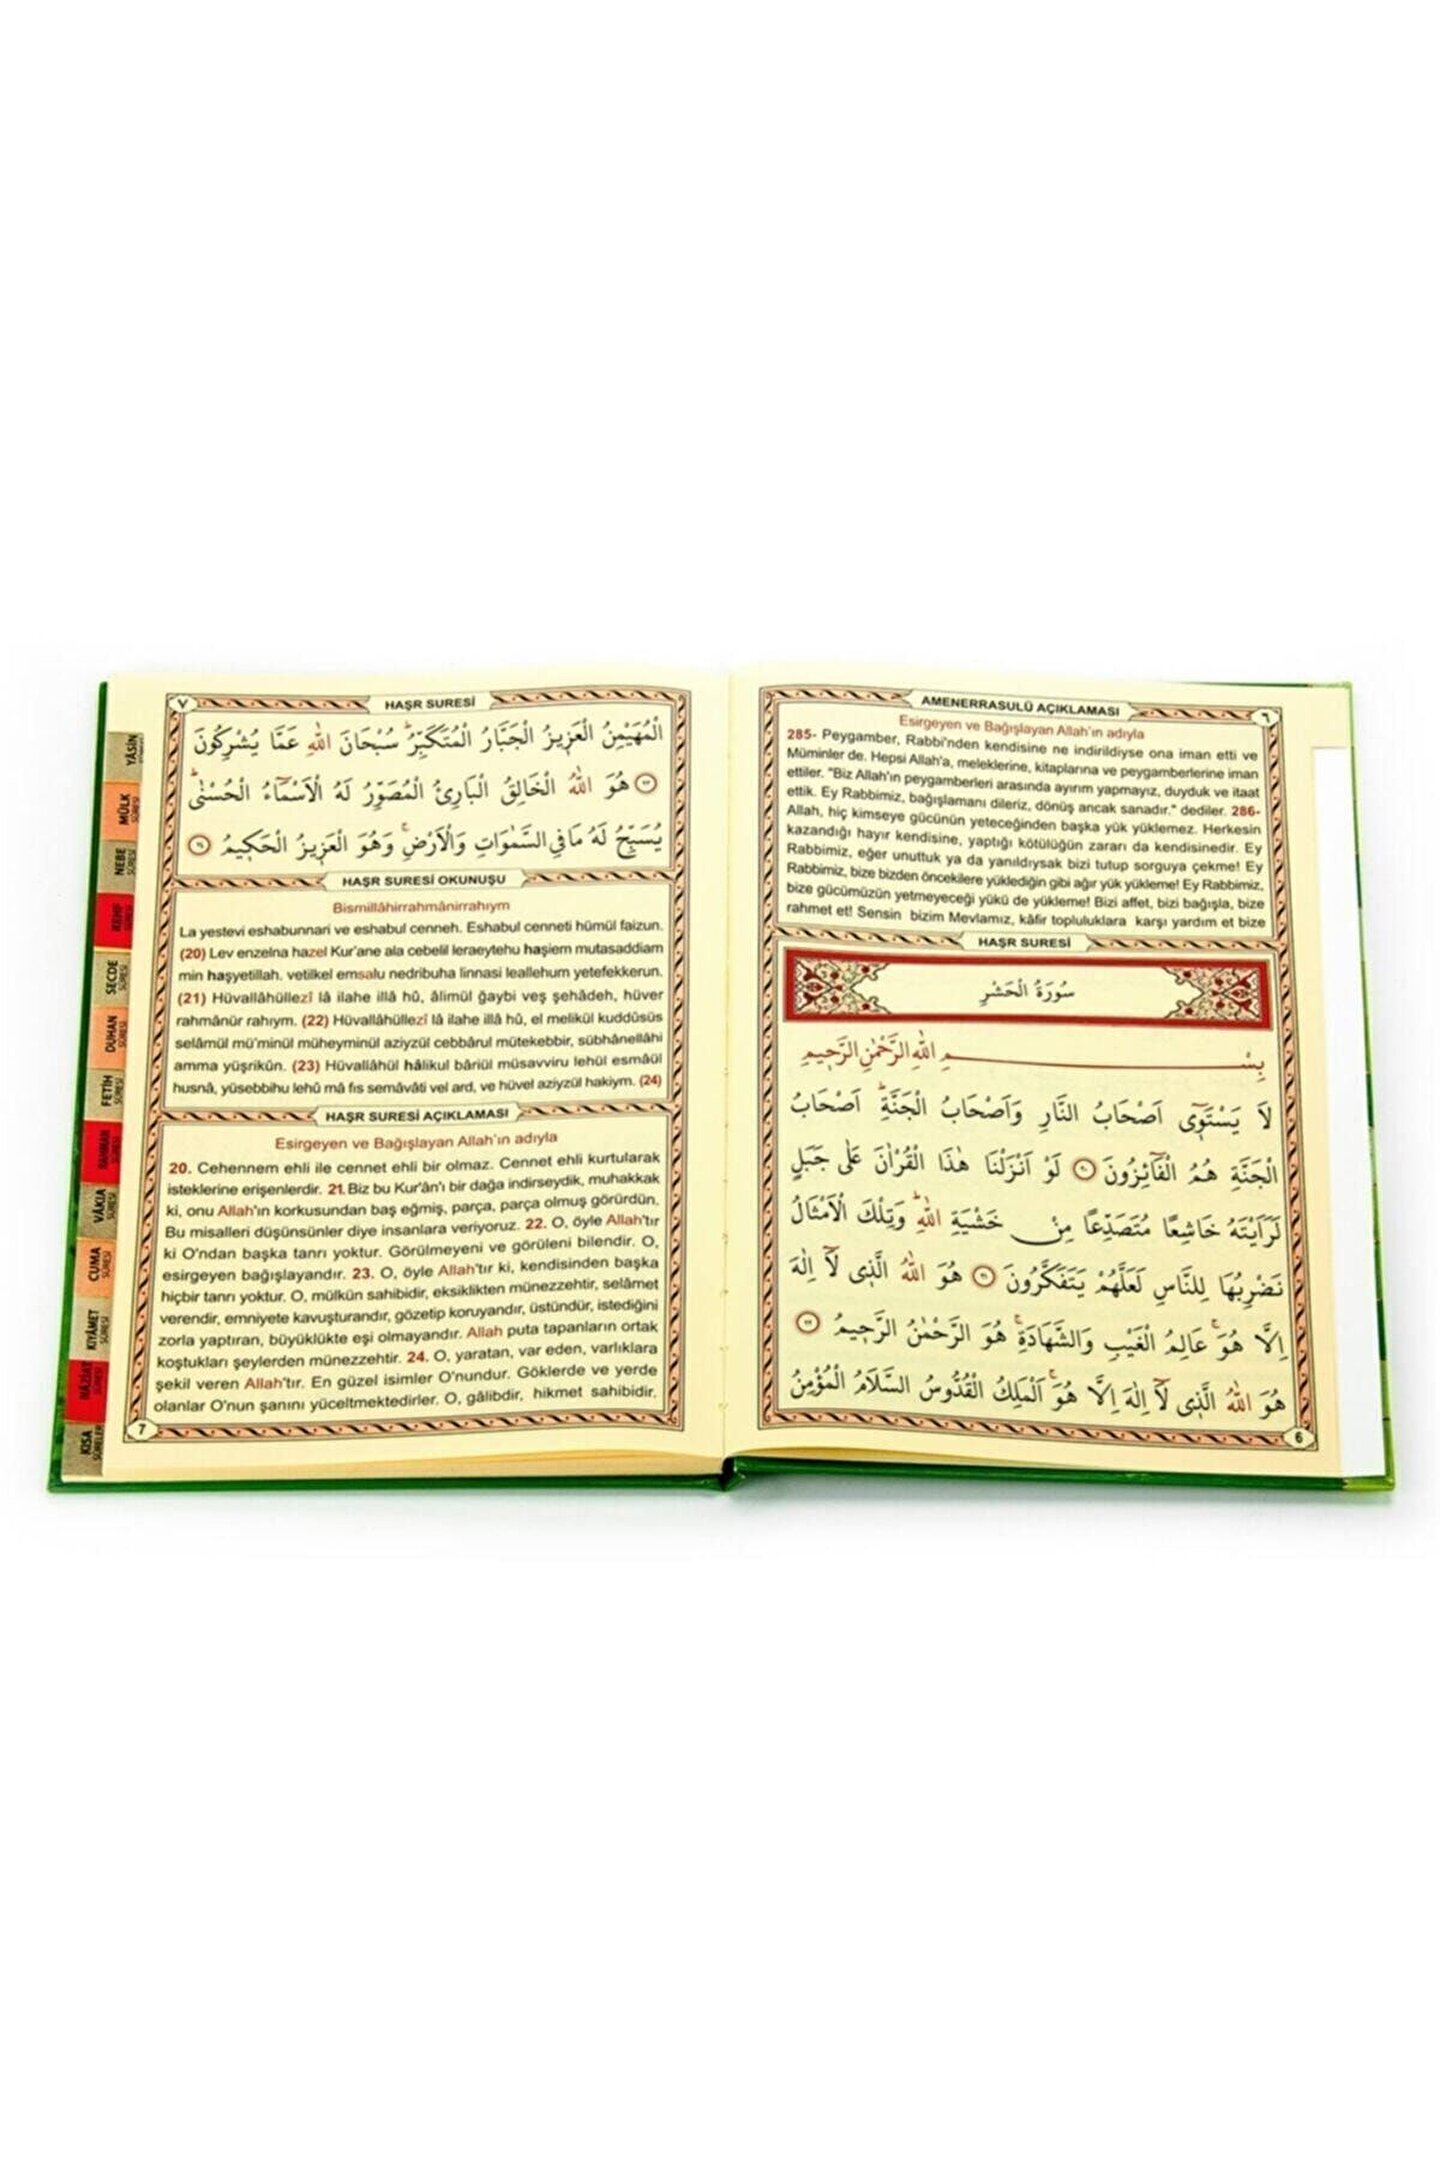 AMENERRASULÜ AÇIKLAMASI
٦
Esirgeyen ve Bağışlayan Allah'ın adıyla
285- Peygamber, Rabbi'nden kendisine ne indirildiyse ona iman etti ve
Müminler de. Hepsi Allah'a, meleklerine, kitaplarına ve peygamberlerine iman
ettiler. "Biz Allah'ın peygamberleri arasında ayırım yapmayız, duyduk ve itaat
ettik. Ey Rabbimiz, bağışlamanı dileriz, dönüş ancak sanadır." dediler. 286-
Allah, hiç kimseye gücünün yeteceğinden başka yük yüklemez. Herkesin
kazandığı hayır kendisine, yaptığı kötülüğün zararı da kendisinedir. Ey
Rabbimiz, eğer unuttuk ya da yanıldıysak bizi tutup sorguya çekme! Ey
Rabbimiz, bize bizden öncekilere yüklediğin gibi ağır yük yükleme! Ey Rabbimiz,
bize gücümüzün yetmeyeceği yükü de yükleme! Bizi affet, bizi bağışla, bize
rahmet et! Sensin bizim Mevlamız, kâfir topluluklara karşı yardım et bize
HAŞR SURESİ
سُورَةُ الْحَشْرِ
بِسْمِ اللّٰهِ الرَّحْمٰنِ الرَّحِيمِ
لَا يَسْتَوِٓى اَصْحَابُ النَّارِ وَاَصْحَابُ الْجَنَّةِۜ اَصْحَابُ
الْجَنَّةِ هُمُ الْفَٓائِزُونَ ﴿٢٠﴾ لَوْ اَنْزَلْنَا هٰذَا الْقُرْاٰنَ عَلٰى جَبَلٍ
لَرَاَيْتَهُ خَاشِعًا مُتَصَدِّعًا مِنْ خَشْيَةِ اللّٰهِۜ وَتِلْكَ الْاَمْثَالُ
نَضْرِبُهَا لِلنَّاسِ لَعَلَّهُمْ يَتَفَكَّرُونَ ﴿٢١﴾ هُوَ اللّٰهُ الَّذِى لَٓا اِلٰهَ
اِلَّا هُوَۚ عَالِمُ الْغَيْبِ وَالشَّهَادَةِۚ هُوَ الرَّحْمٰنُ الرَّحِيمُ ﴿٢٢﴾
هُوَ اللّٰهُ الَّذِى لَٓا اِلٰهَ اِلَّا هُوَۚ اَلْمَلِكُ الْقُدُّوسُ السَّلَامُ الْمُؤْمِنُ
6
HAŞR SURESİ
٧
الْمُهَيْمِنُ الْعَزِيزُ الْجَبَّارُ الْمُتَكَبِّرُۜ سُبْحَانَ اللّٰهِ عَمَّا يُشْرِكُونَ
﴿٢٣﴾ هُوَ اللّٰهُ الْخَالِقُ الْبَارِئُ الْمُصَوِّرُ لَهُ الْاَسْمَٓاءُ الْحُسْنٰىۜ
يُسَبِّحُ لَهُ مَا فِي السَّمٰوَاتِ وَالْاَرْضِۚ وَهُوَ الْعَزِيزُ الْحَكِيمُ ﴿٢٤﴾
HAŞR SURESİ OKUNUŞU
Bismillâhirrahmânirrahıym
La yestevi eshabunnari ve eshabul cenneh. Eshabul cenneti hümül faizun.
(20) Lev enzelna hazel Kur'ane ala cebelil leraeytehu haşiem mutasaddiam
min haşyetillah. vetilkel emsalu nedribuha linnasi leallehum yetefekkerun.
(21) Hüvallâhüllezî lâ ilahe illâ hû, âlimül ğaybi veş şehâdeh, hüver
rahmânür rahıym. (22) Hüvallâhüllezî lâ ilahe illâ hû, el melikül kuddûsüs
selâmül mü'minül müheyminül aziyzül cebbârul mütekebbir, sübhânellâhi
amma yüşrikûn. (23) Hüvallâhül hâlikul bâriül müsavviru lehül esmâül
husnâ, yüsebbihu lehû mâ fis semâvâti vel ard, ve hüvel aziyzül hakiym. (24)
HAŞR SURESİ AÇIKLAMASI
Esirgeyen ve Bağışlayan Allah'ın adıyla
20. Cehennem ehli ile cennet ehli bir olmaz. Cennet ehli kurtularak
isteklerine erişenlerdir. 21. Biz bu Kur'ân'ı bir dağa indirseydik, muhakkak
ki, onu Allah'ın korkusundan baş eğmiş, parça, parça olmuş görürdün.
Bu misalleri düşünsünler diye insanlara veriyoruz. 22. O, öyle Allah'tır
ki O'ndan başka tanrı yoktur. Görülmeyeni ve görüleni bilendir. O,
esirgeyen bağışlayandır. 23. O, öyle Allah'tır ki, kendisinden başka
hiçbir tanrı yoktur. O, mülkün sahibidir, eksiklikten münezzehtir, selâmet
verendir, emniyete kavuşturandır, gözetip koruyandır, üstündür, istediğini
zorla yaptıran, büyüklükte eşi olmayandır. Allah puta tapanların ortak
koştukları şeylerden münezzehtir. 24. O, yaratan, var eden, varlıklara
şekil veren Allah'tır. En güzel isimler O'nundur. Göklerde ve yerde
olanlar O'nun şanını yüceltmektedirler. O, gâlibdir, hikmet sahibidir.
7
YÂSİN
MÜLK SÛRESİ
NEBE SÛRESİ
KEHF SÛRESİ
SECDE SÛRESİ
DUHAN SÛRESİ
FETİH SÛRESİ
RAHMAN SÛRESİ
VÂKIA SÛRESİ
CUMA SÛRESİ
KIYÂMET SÛRESİ
NÂZİAT SÛRESİ
KISA SÛRELER